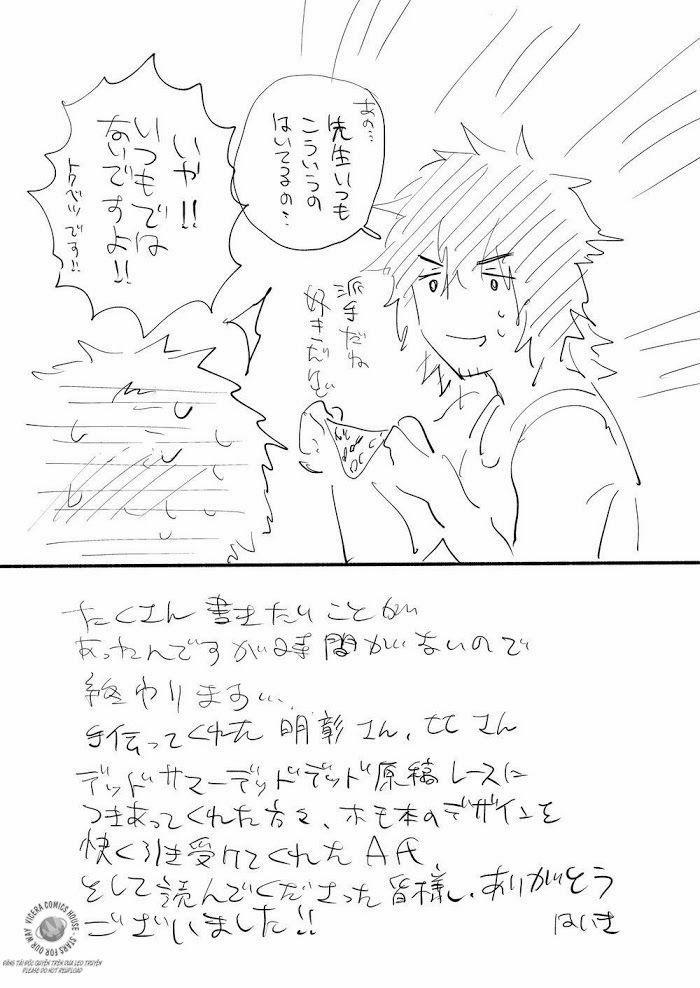 あの…
先生いつも
こういうの
はいてるの…
いや!!
いつもでは
ないですよ!!
トクベツです!!
派手だね
好きだな
たくさん 書きたいことが
あったんですが時間がないので
終わります…
手伝ってくれた 明彰さん、ヒヒさん
デッドサマーデッドデッド原稿レースに
つきあってくれた方々、ホモ本のデザインを
快く引き受けてくれたA氏、
そして読んでくださった皆様、ありがとう
ございました!!
はいき
VICERA COMICS HOUSE - STARS FOR OUR WAY
ĐĂNG TẢI ĐỘC QUYỀN TRÊN DƯA LEO TRUYỆN
PLEASE DO NOT REUPLOAD